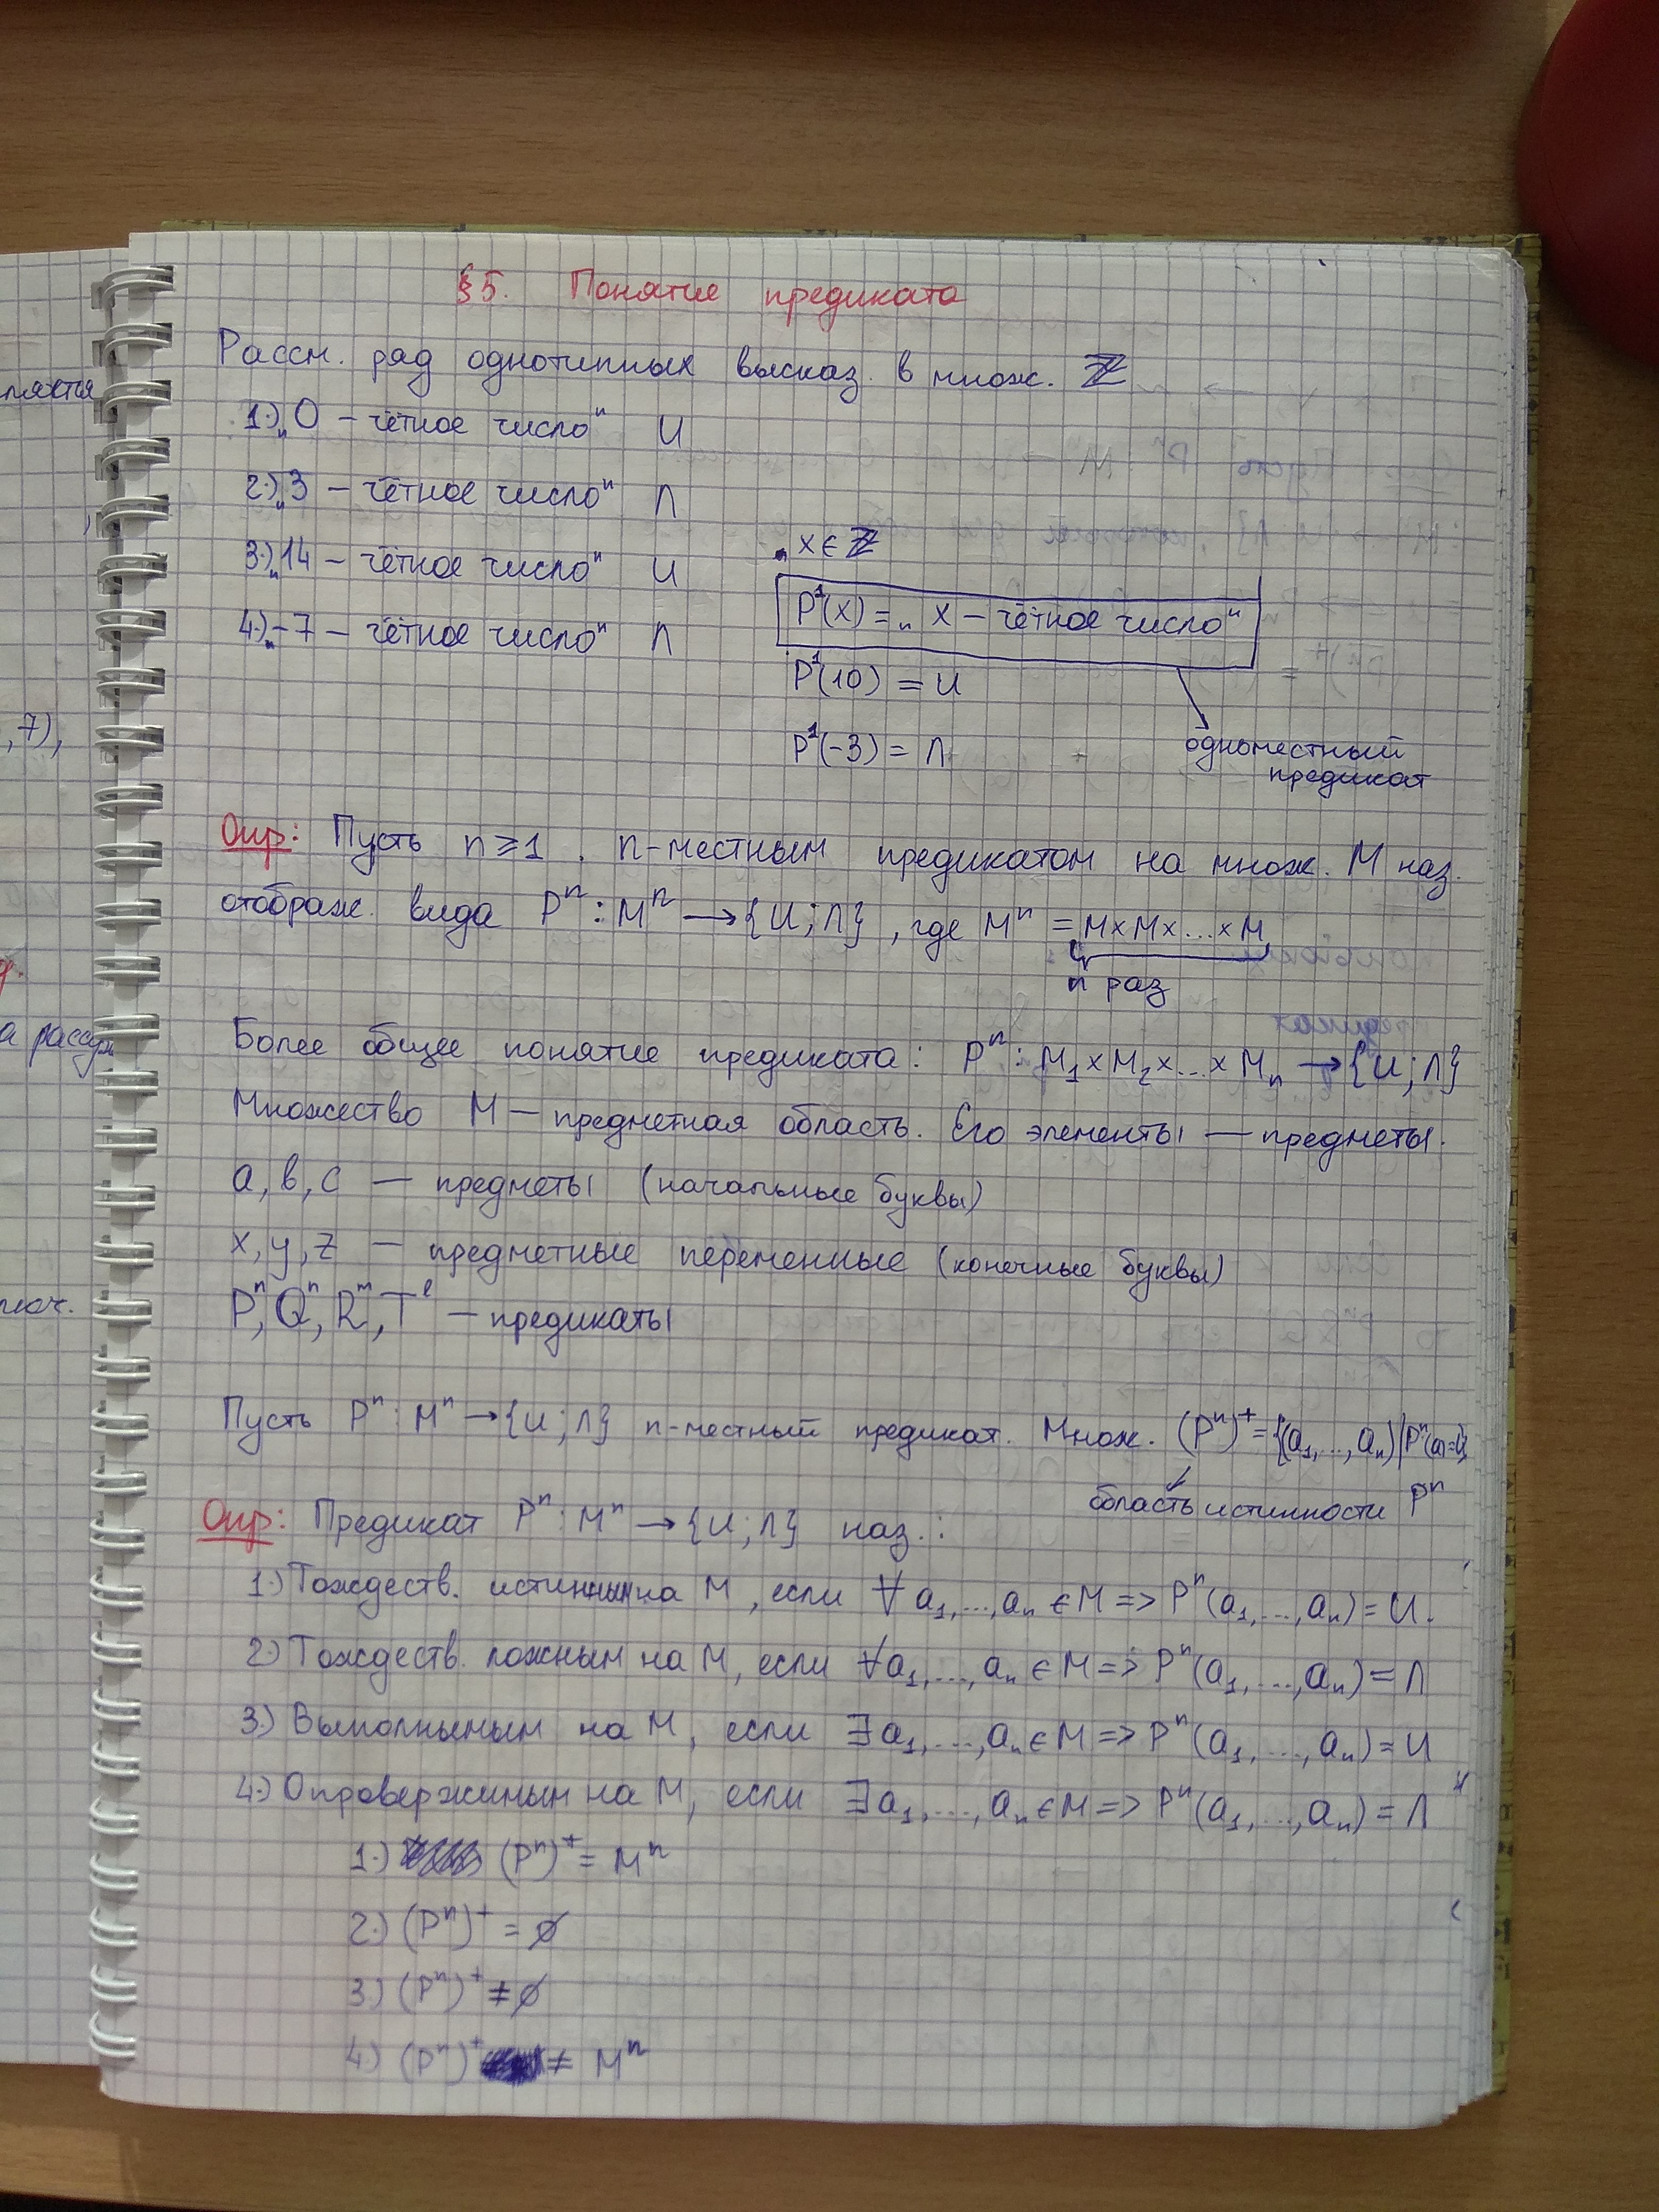 §5. Понятие предиката
Рассм. ряд однотипных высказ. в множ. ℤ
1.) „0 – чётное число" И
2.) „3 – чётное число" Л
3.) „14 – чётное число" И
4.) „-7 – чётное число" Л
x ∈ ℤ
P¹(x) = „ x – чётное число"
P¹(10) = И
P¹(-3) = Л
одноместный
предикат
Опр: Пусть n ⩾ 1. n-местным предикатом на множ. M наз.
отображ. вида Pⁿ : Mⁿ → {И; Л}, где Mⁿ = M×M×...×M
n раз
Более общее понятие предиката: Pⁿ : M₁×M₂×...×Mₙ → {И; Л}
Множество M — предметная область. Его элементы — предметы.
a, b, c — предметы (начальные буквы)
x, y, z — предметные переменные (конечные буквы)
Pⁿ, Qⁿ, Rᵐ, Tˡ — предикаты
Пусть Pⁿ : Mⁿ → {И; Л} n-местный предикат. Множ. (Pⁿ)⁺ = {(a₁,...,aₙ)|Pⁿ(a)=И}
область истинности Pⁿ
Опр: Предикат Pⁿ : Mⁿ → {И; Л} наз.:
1.) Тождеств. истинным на M, если ∀ a₁,...,aₙ ∈ M => Pⁿ(a₁,...,aₙ) = И.
2.) Тождеств. ложным на M, если ∀a₁,...,aₙ ∈ M => Pⁿ(a₁,...,aₙ) = Л
3.) Выполнимым на M, если ∃a₁,...,aₙ ∈ M => Pⁿ(a₁,...,aₙ) = И
4.) Опровержимым на M, если ∃a₁,...,aₙ ∈ M => Pⁿ(a₁,...,aₙ) = Л
1.) (Pⁿ)⁺ = Mⁿ
2.) (Pⁿ)⁺ = ∅
3.) (Pⁿ)⁺ ≠ ∅
4.) (Pⁿ)⁺ ≠ Mⁿ
, 7),